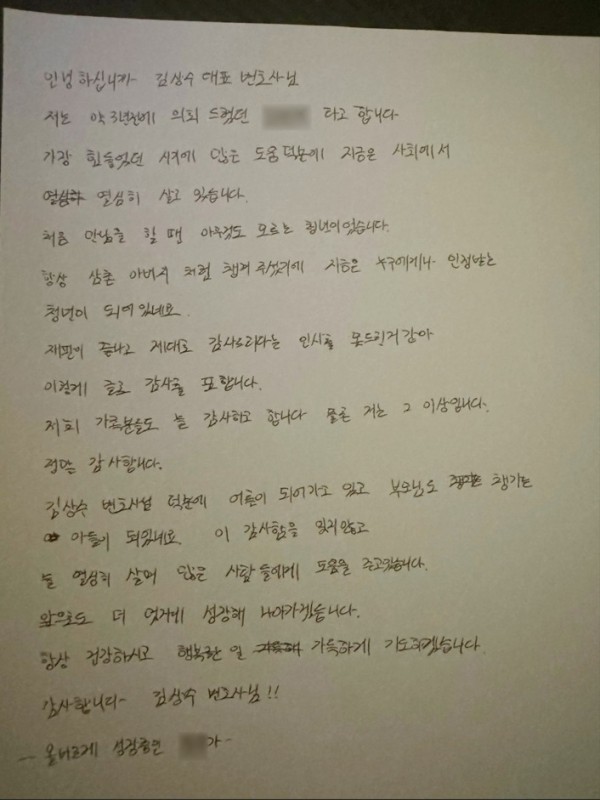 안녕하십니까- 김상수 대표 변호사님
저는 약 3년전에 의뢰 드렸던 라고 합니다-
가장 힘들었던 시기에 많은 도움 덕분에 지금은 사회에서
열심히 살고 있습니다.
처음 만남을 할 때 아무것도 모르는 청년이었습니다.
항상 삼촌 아버지 처럼 챙겨 주셨기에 지금은 누구에게나 인정받는
청년이 되어 있네요.
재판이 끝나고 제대로 감사드리다는 인사를 못드린거 같아
이렇게 글로 감사를 표합니다.
저희 가족분들도 늘 감사하고 합니다 물론 저는 그 이상입니다.
정말 감사합니다.
김상수 변호사님 덕분에 어른이 되어가고 있고 부모님도 챙기는
아들이 되었네요. 이 감사함을 잊지않고
늘 열심히 살며 많은 사람들에게 도움을 주고있습니다.
앞으로도 더 멋지게 성장해 나아가겠습니다.
항상 건강하시고 행복한 일 가득하게 기도하겠습니다.
감사합니다- 김상수 변호사님!!
- 올바르게 성장중인 가-